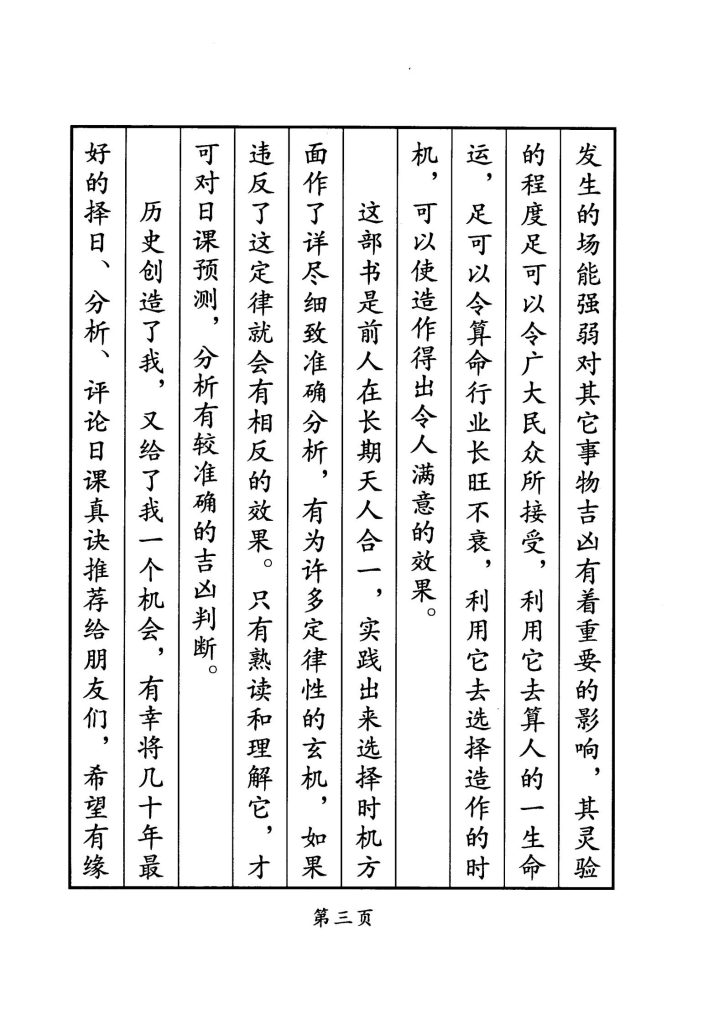 发生的场能强弱对其它事物吉凶有着重要的影响，其灵验
的程度足可以令广大民众所接受，利用它去算人的一生命
运，足可以令算命行业长旺不衰，利用它去选择造作的时
机，可以使造作得出令人满意的效果。
这部书是前人在长期天人合一，实践出来选择时机方
面作了详尽细致准确分析，有为许多定律性的玄机，如果
违反了这定律就会有相反的效果。只有熟读和理解它，才
可对日课预测，分析有较准确的吉凶判断。
历史创造了我，又给了我一个机会，有幸将几十年最
好的择日、分析、评论日课真诀推荐给朋友们，希望有缘
第三页